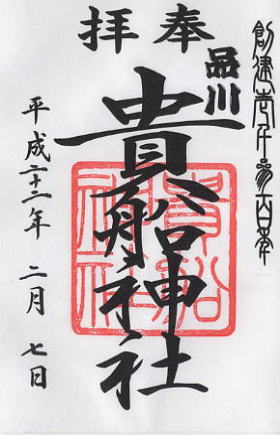 創建壱千参百年
奉拝
品川
貴船神社
貴船神社
平成二十二年 二月 七日